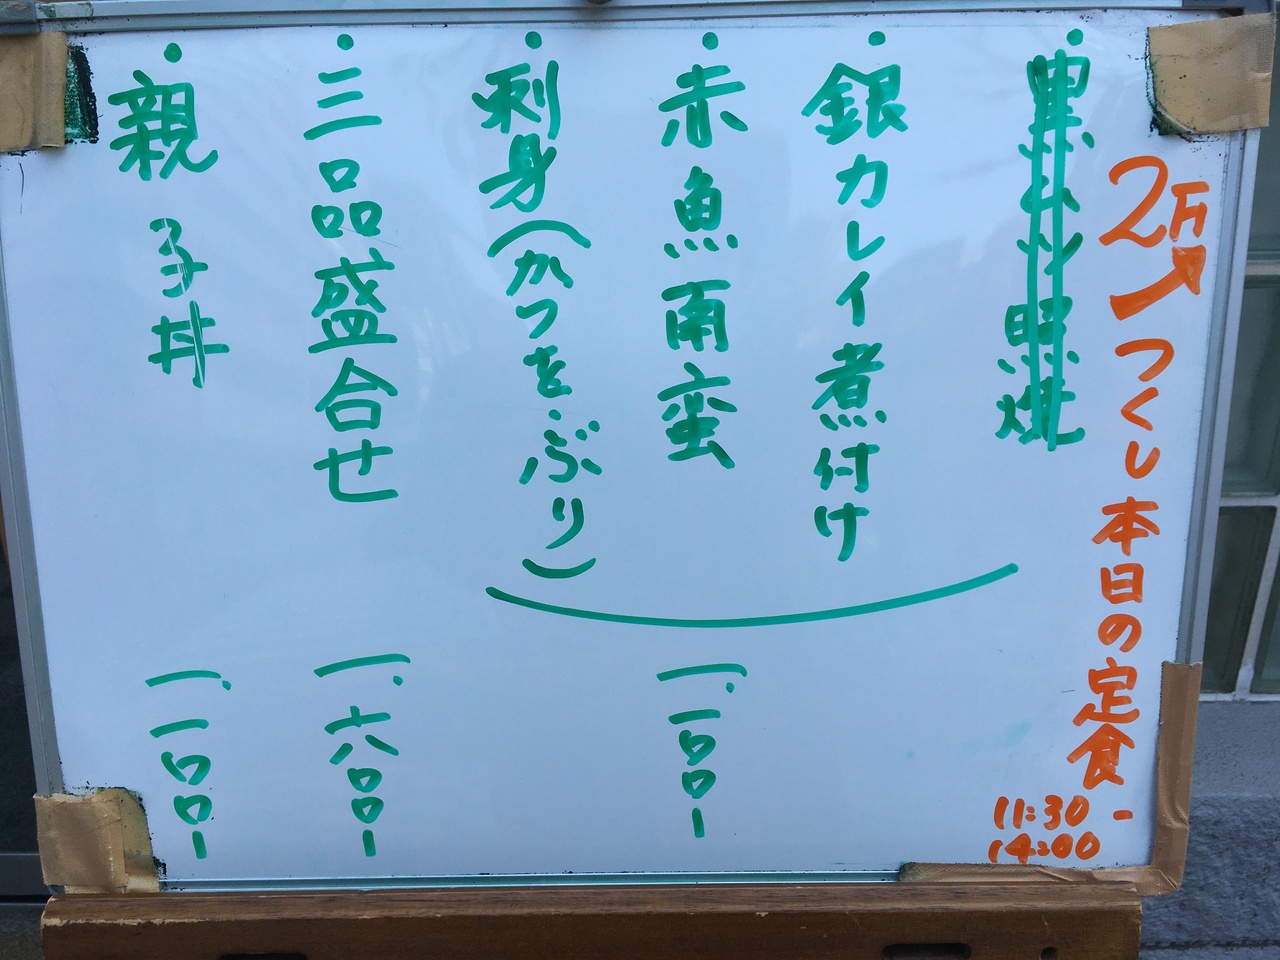 2 ↗ つくし 本日の定食
11:30 -
14:00
・黒ムツ照焼
・銀カレイ煮付け
・赤魚南蛮
一、一〇〇ー
・刺身(かつを・ぶり)
・三品盛合せ
一、六〇〇ー
・親子丼
一、一〇〇ー